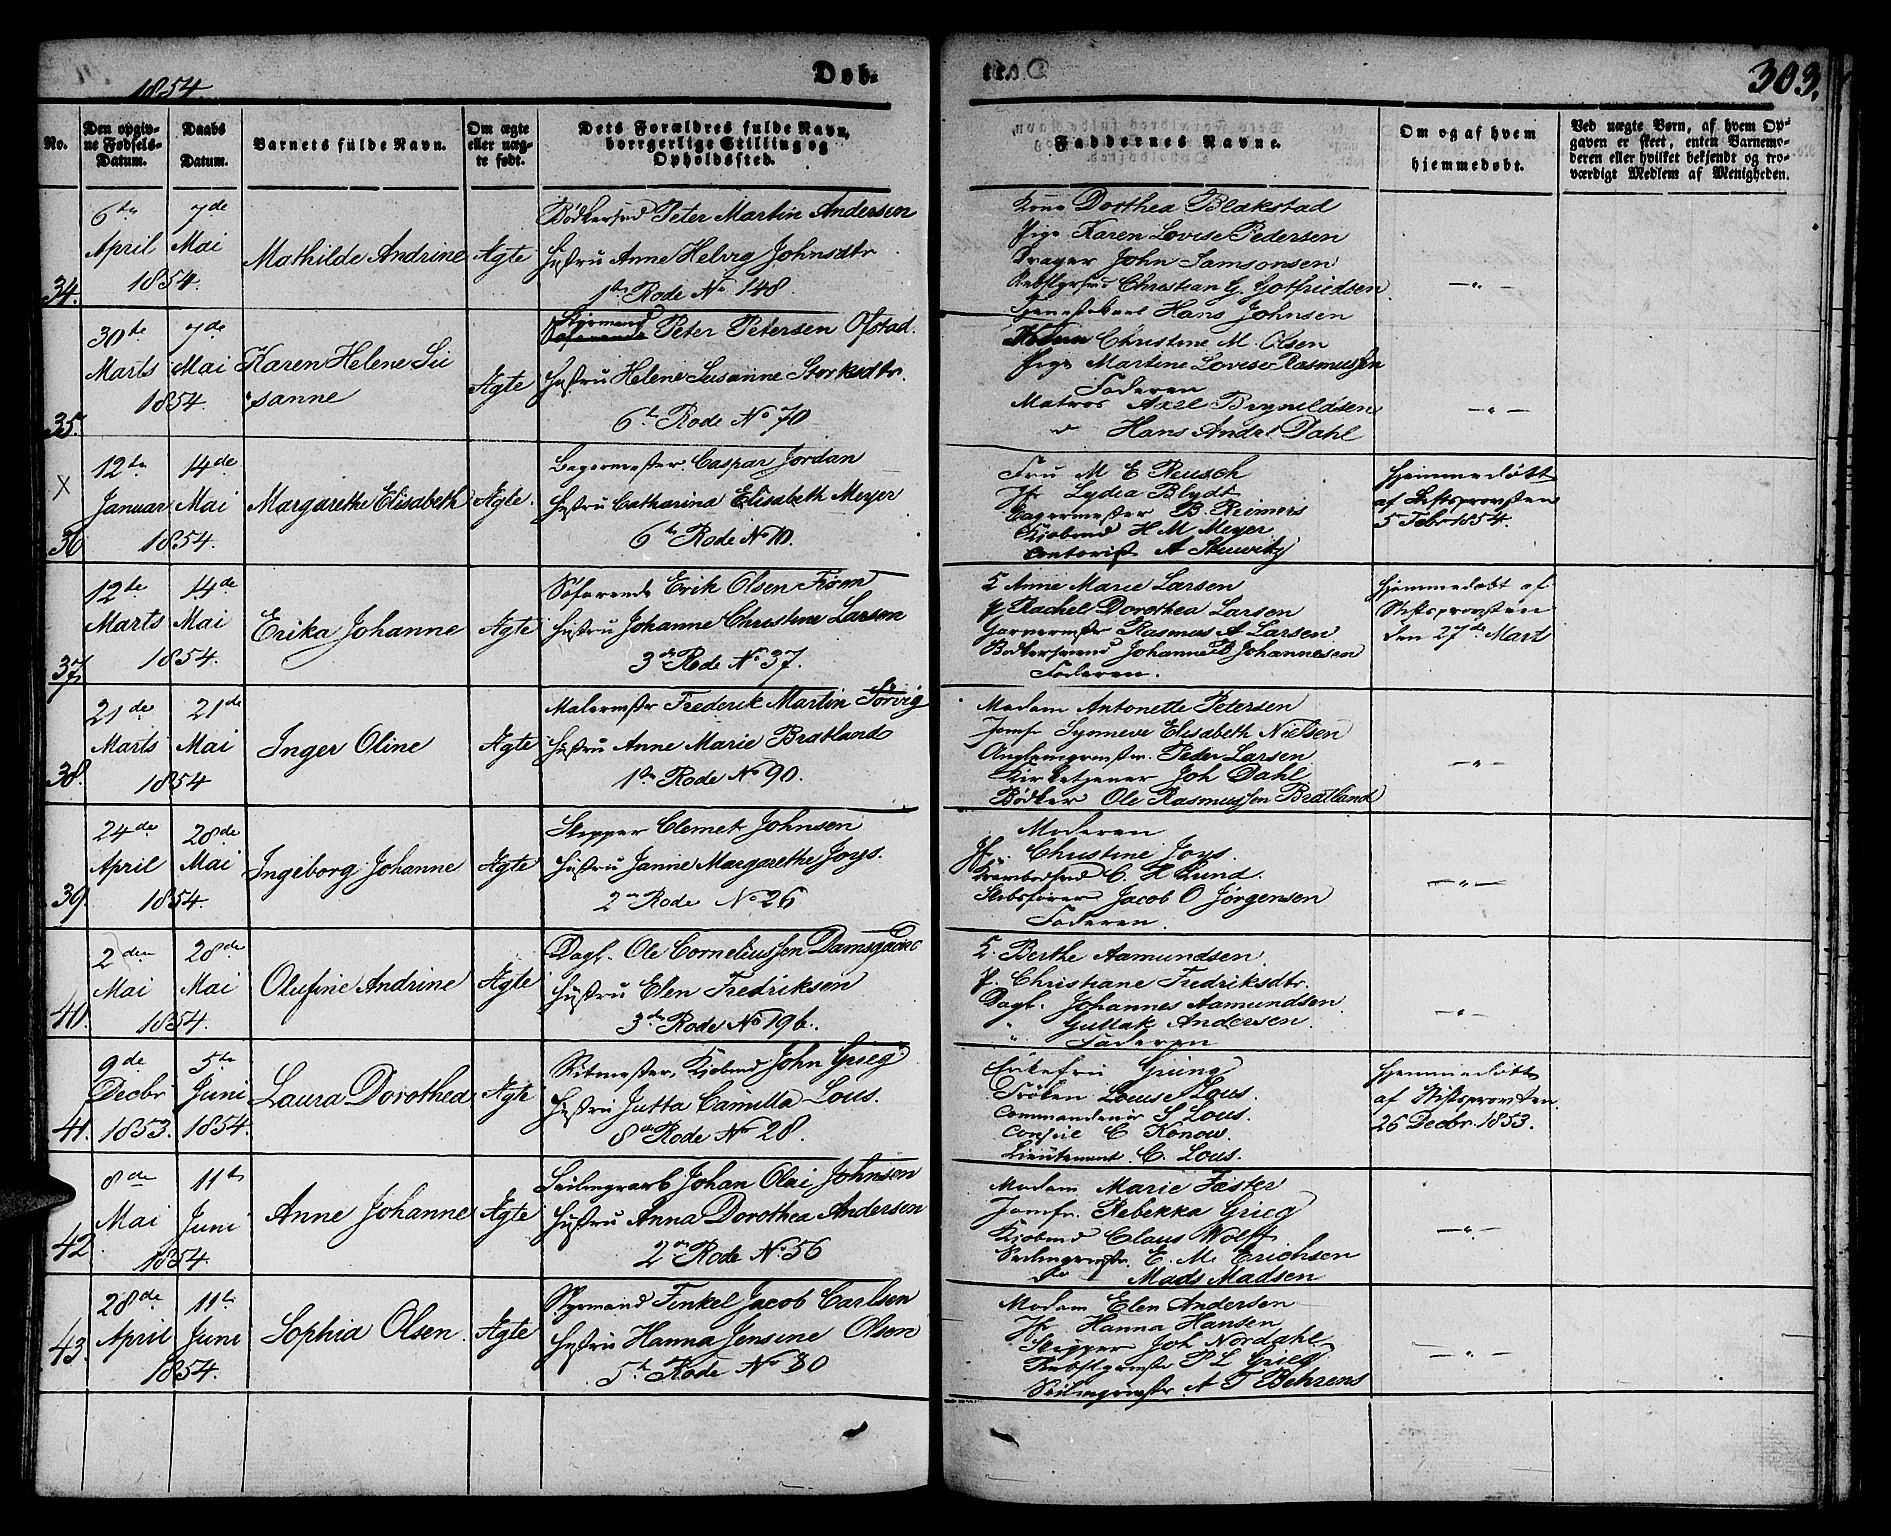 1854.
Døb-
te.
303.
No.
Den opgiv-
ne Fødsels-
Datum.
Daabs
Datum.
Barnets fulde Navn.
Om ægte
eller uæg-
te født.
Dets Forældres fulde Navn,
borgerlige Stilling og
Opholdssted.
Faddernes Navne.
Om og af hvem
hjemmedøbt.
Ved uægte Børn, af hvem Op-
gaven er skeet, enten Barnemo-
deren eller hvilket bekjendt og tro-
værdigt Medlem af Menigheden.
34.
6te April 7de Mai 1854.
Mathilde Andrine
Ægte
Bødkersvd Peter Martin Andersen
Hustru Anne Helvig Johnsdtr
1te Rode No 148.
Kone Dorthea Blakstad
Pige Karen Lovise Pedersen
Drager John Samsonsen
Christian G. Gotfriedsen
Hans Johnsen
— " —
35.
30te Marts 7de Mai 1854.
Karen Helene Su
"sanne
Ægte
Styrmand
Søfarende Peter Petersen Ofstad.
Hustru Helene Susanne Storksdtr.
6te Rode No 70
Christine M. Olsen
Pige Martine Lovise Rasmussen
Faderen
Matros Axel Brynildsen
" Hans Andr. Dahl
— " —
X
36
12te Januar 14de Mai 1854.
Margarethe Elisabeth
Ægte.
Bagermester Caspar Jordan
Hustru Catharina Elisabeth Meyer
6te Rode No 10.
Fru M E Reusch
Jfr Lydia Blydt
Bagermester B. Reimers
Kjøbmd H M Meyer
Contorist A Steuwitz
Hjemmedøbt
af Stiftsprovsten
5 Febr 1854.
37
12te Marts 14de Mai 1854.
Erika Johanne
Ægte
Søfarende Erik Olsen Fröm
Hustru Johanne Christine Larsen
3die Rode No 37.
K Anne Marie Larsen
P. Rachel Dorothea Larsen
Garvermstr Rasmus A Larsen
Bødkersvend Johannes B Johannesen
Faderen.
Hjemmedøbt af
Stiftsprovsten
den 27de Mart
38.
21de Marts 21de Mai 1854
Inger Oline
Ægte
Malermstr Frederik Martin Sørvig
Hustru Anne Marie Bratland
1te Rode No 90.
Madam Antonette Petersen
Jomfr Synneve Elisabeth Nielsen
Peter Larsen
Kirketjener Joh Dahl
Bødker Ole Rasmussen Bratland
— " —
39
24de April 28de Mai 1854.
Ingeborg Johanne
Ægte
Skipper Clemet Johnsen
Hustru Janne Margarethe Joys.
2n Rode No 26
Moderen
Jfr. Christine Joys.
C. H Lund.
Skibsfører Jacob O Jørgensen
Faderen.
— " —
40.
2den Mai 28de Mai 1854.
Olufine Andrine
Ægte
Dagl. Ole Corneliussen Damsgaard
Hustru Elen Fredriksen
3die Rode No 196.
K. Berthe Aamundsen
P. Christiane Fredriksdtr.
Dagl. Johannes Aamundsen
" Gullak Andersen
" Faderen
— " —
41.
9de Decbr 1853. 5te Juni 1854.
Laura Dorothea
Ægte
Ritmester, Kjøbmd John Grieg
Hustru Jutta Camilla Lous.
8de Rode No 28.
Enkefru Grung
Frøken Louise Lous.
Commandeur S Lous.
Consul C Konow.
Lieutenant C. Lous.
Hjemmedøbt
af Stiftsprovsten
26 Decbr. 1853.
42
8de Mai 11te Juni 1854.
Anne Johanne
Ægte
Seilmagerarb Johan Olai Johnsen
Hustru Anna Dorothea Andersen
2n Rode No 56
Madam Marie Fæster
Jomfr. Rebekka Grieg
Kjøbmd Claus Wolff
Seilmagermstr. E. M. Erichsen
do Mads Madsen
— " —
43.
28de April 11te Juni 1854.
Sophia Olsen.
Ægte
Styrmand Finkel Jacob Carlsen
Hustru Hanna Jensine Olsen
5te Rode No 80
Madam Elen Andersen
Jfr. Hanna Hansen
Skipper Joh Nordahl
P L Grieg
Seilmagermstr. A T Behrens
— " —